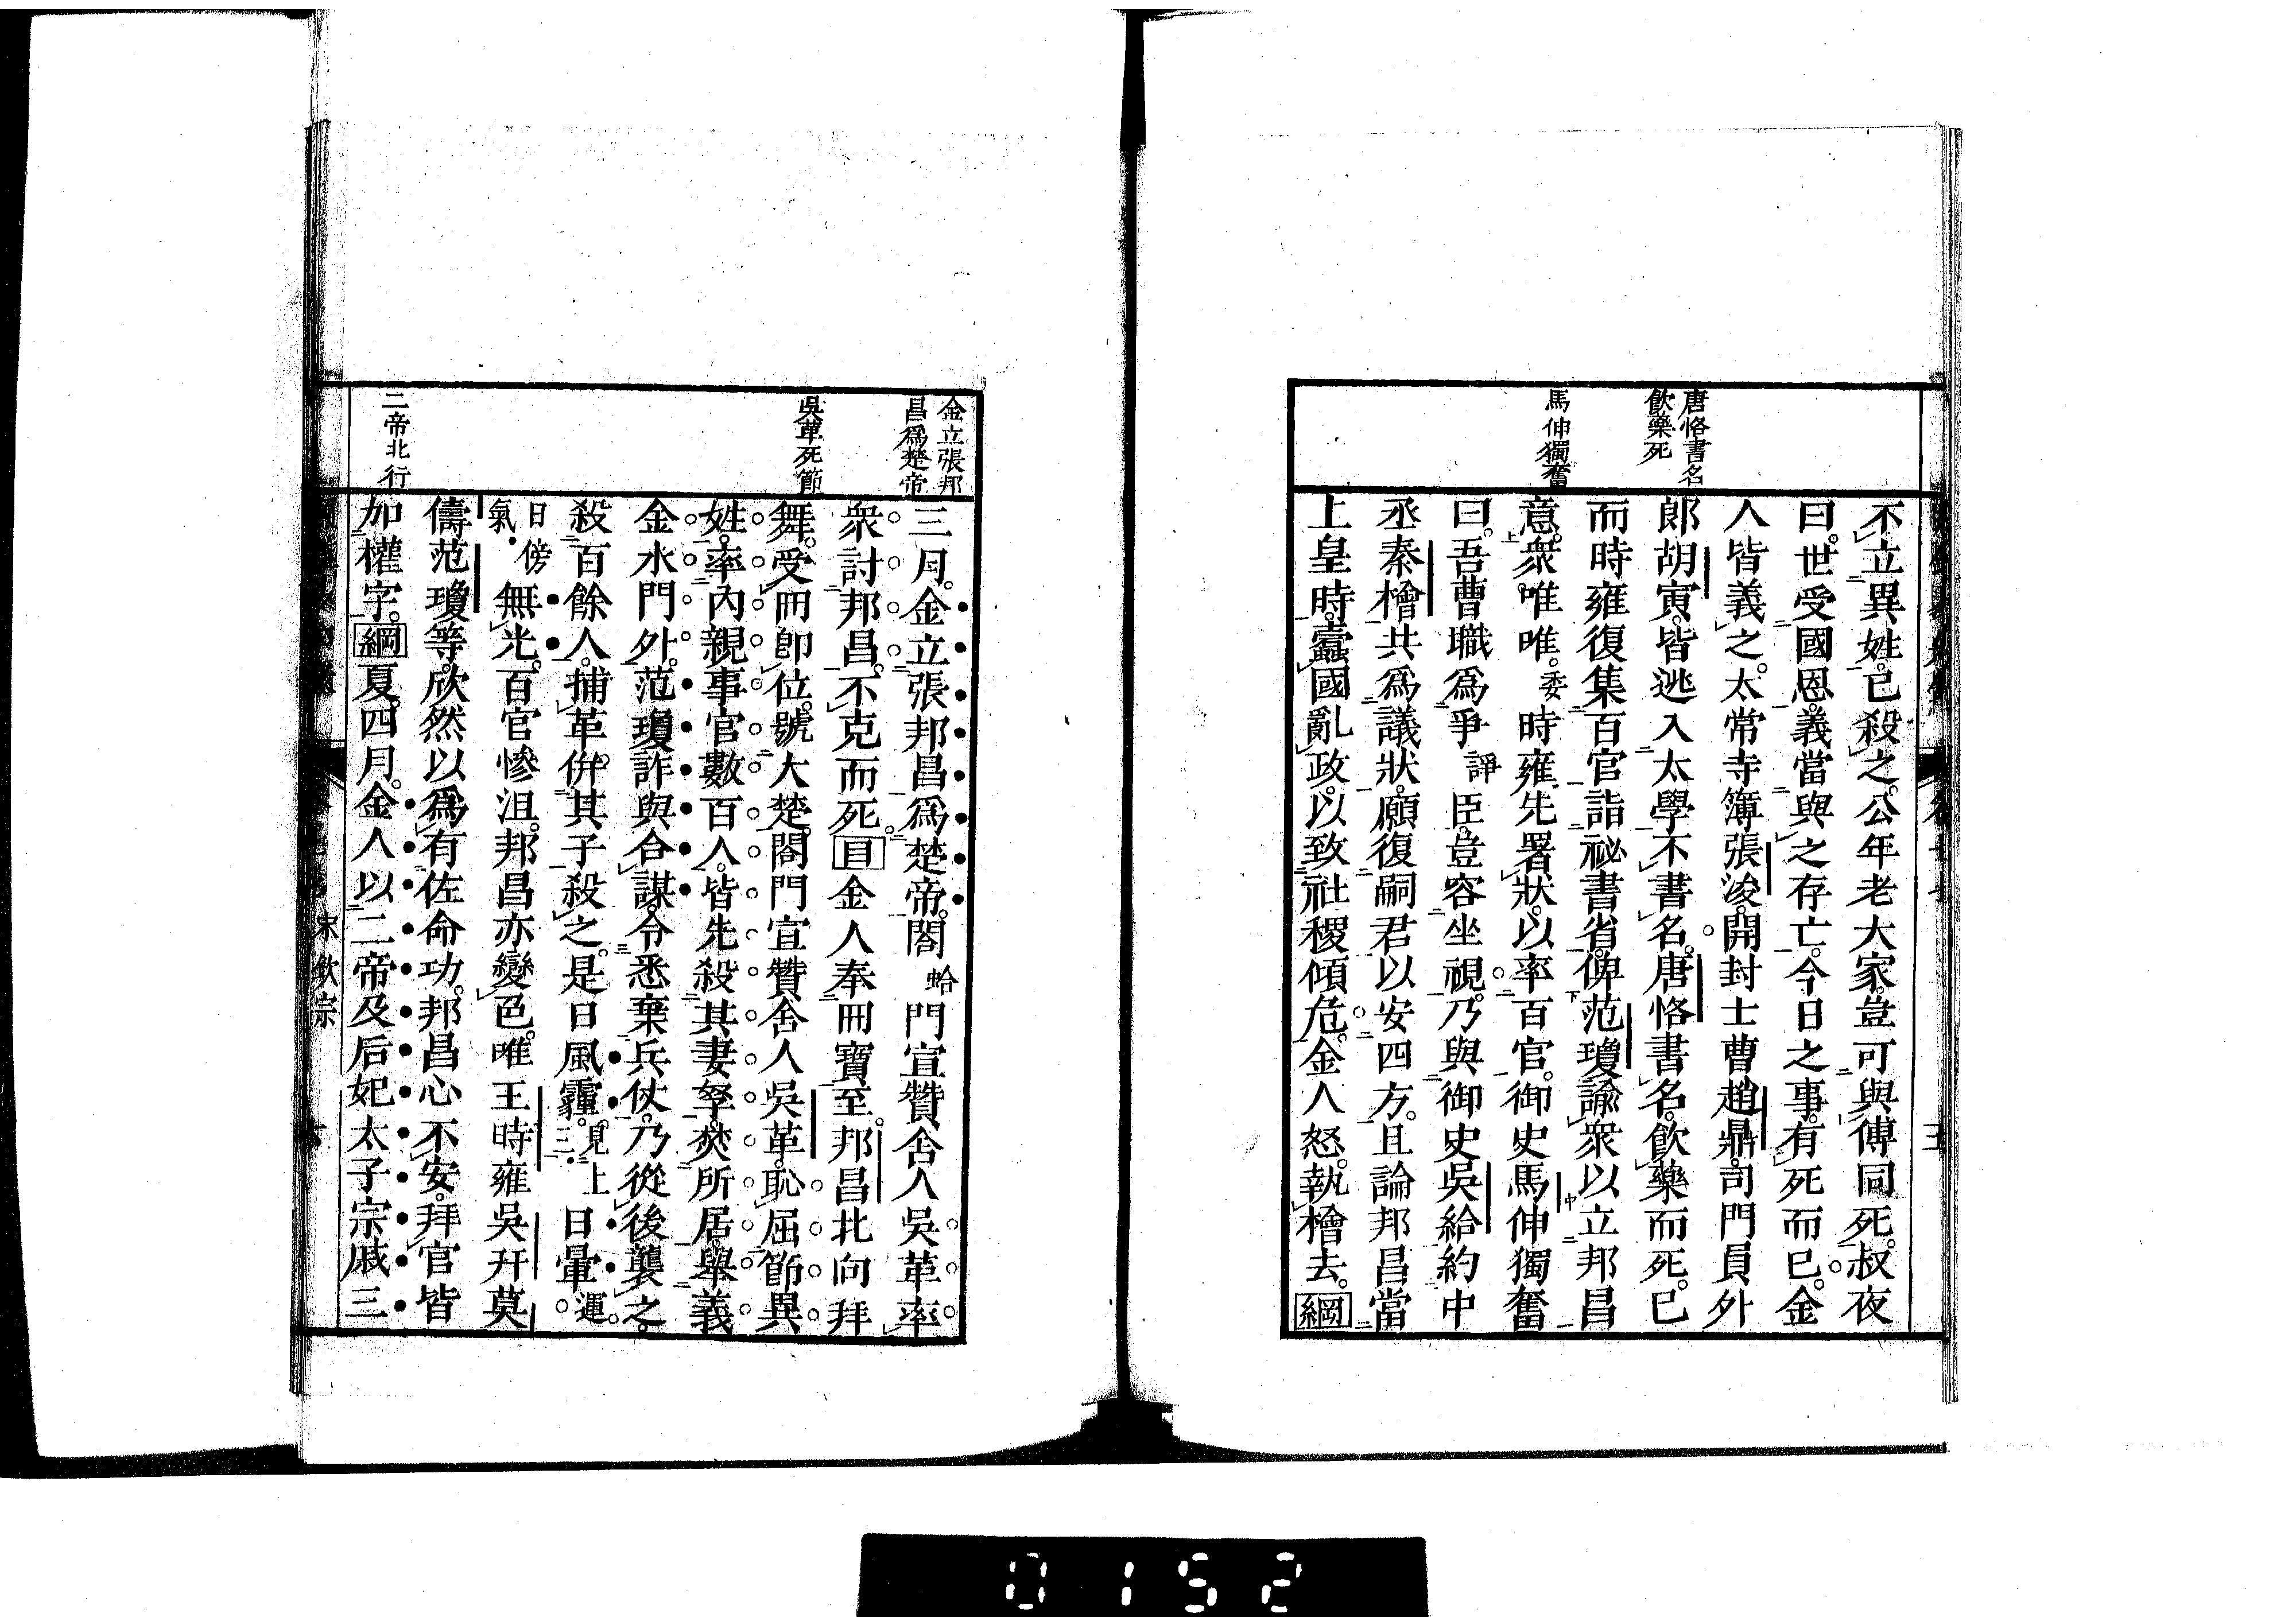 唐恪書名
飲藥死
馬伸獨奮
不立異姓。已殺之。公年老大家。豈可與傅同死。叔夜
曰。世受國恩。義當與之存亡。今日之事。有死而已。金
人皆義之。太常寺簿張浚。開封士曹趙鼎。司門員外
郎胡寅。皆逃入太學不書名。唐恪書名。飲藥而死。已
而時雍復集百官詣祕書省。俾范瓊諭衆以立邦昌
意。衆唯唯。委時雍先署狀。以率百官。御史馬伸獨奮
曰。吾曹職爲爭諍臣。豈容坐視。乃與御史吳給約中
丞秦檜共爲議狀。願復嗣君以安四方。且論邦昌當
上皇時。蠹國亂政。以致社稷傾危。金人怒。執檜去。綱
金立張邦
昌爲楚帝
吳革死節
二帝北行
三月。金立張邦昌爲楚帝。閤蛤門宣贊舍人吳革率
衆討邦昌。不克而死。目金人奉冊寶至。邦昌北向拜
舞。受冊卽位。號大楚。閤門宣贊舍人吳革。恥屈節異
姓。率內親事官數百人。皆先殺其妻孥。焚所居。舉義
金水門外。范瓊詐與合謀。令悉棄兵仗。乃從後襲之。
殺百餘人。捕革併其子殺之。是日風霾。見上三。日暈運。
日傍氣。無光。百官慘沮。邦昌亦變色。唯王時雍吳幵莫
儔范瓊等。欣然以爲有佐命功。邦昌心不安。拜官皆
加權字。綱夏。四月。金人以二帝及后妃太子宗戚三
宋欽宗